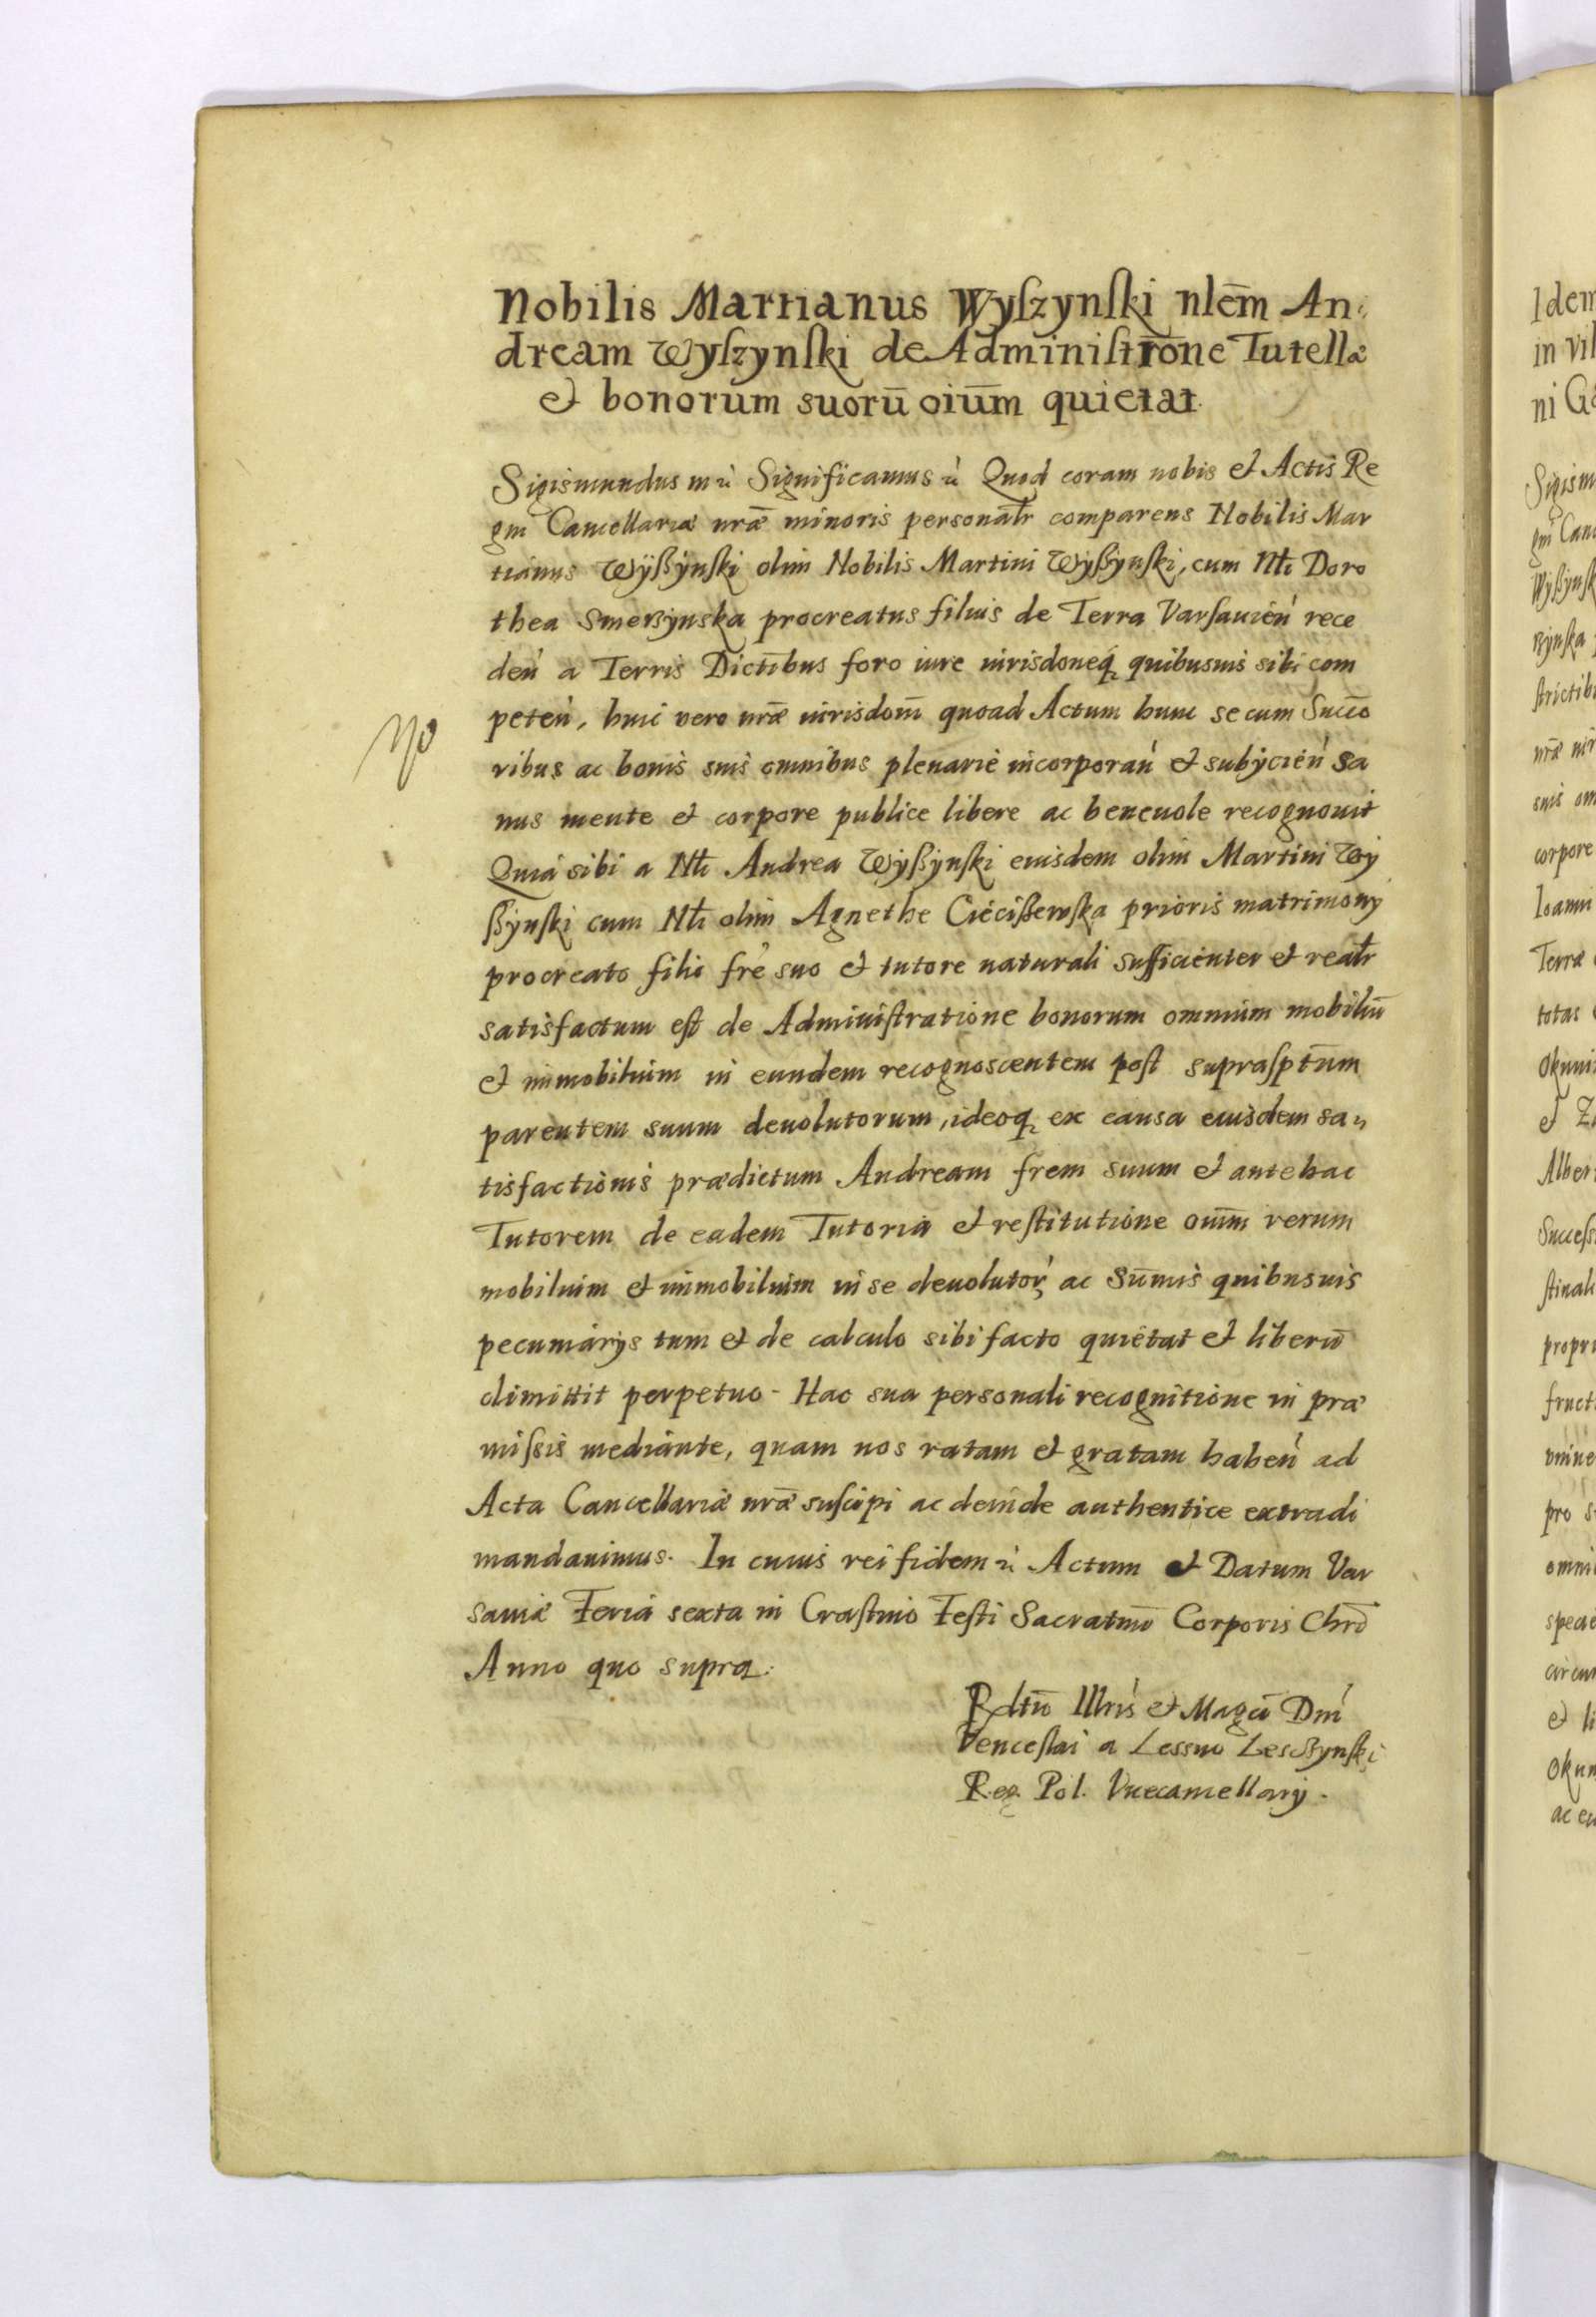 Nobilis Martianus Wyſzynſki nlem̄ An:
dream Wyſzynſki de Adminiſtrōne Tutellæ
et bonorum suorū oiūm quietat.
Sigismundus m ù Significamus ù Quod coram nobis et Actis Re
gni Cancellariæ nrǣ minoris personalr comparens Nobilis Mar
tianus Wÿßÿnſki olim Nobilis Martini Wÿßÿnſki, cum Nli Doro
thea Smerzÿnska procreatus filius de Terra Varſauień rece
deń a Terris Dictībus foro iure iurisdoneq quibusuis sibi com
peteń, huic vero nrǣ iurisdom̄ quoad Actum hunc se cum Succō
ribus ac bonis suis omnibus plenarie incorporań et subÿcień Sa
nus mente et corpore publice libere ac beneuole recognouit
Quia sibi a Nli Andrea Wÿßÿnſki eiusdem olim Martini Wÿ
ßÿnſki cum Nli olim Agnethe Ciecißewſka prioris matrimonÿ
procreato filio fre suo et tutore naturali sufficienter et realr
satisfactum eſt de Adminiſtratione bonorum omnium mobiliū
et immobilium in eundem recognoscentem poſt supraſptūm
parentem suum deuolutorum, ideoq ex causa eiusdem sa„
tisfactionis prædictum Andream frem suum et antehac
Tutorem de eadem Tutoria et reſtitutione oniūm rerum
mobilium et immobilium in se deuolutor ac Sūmis quibusuis
pecuniarÿs tum et de calculo sibi facto quietat et liberū
dimittit perpetuo - Hac sua personali recognitione in præ
miſsis mediante, quam nos ratam et gratam habeń ad
Acta Cancellariæ nrǣ suſcipi ac deinde authentice extradi
mandauimus. In cuius rei fidem ù Actum et Datum Var
sauiæ Feria sexta in Craſtino Feſti Sacratmō Corporis Chrī
Anno quo supra.
No
Rdtū Illris et Magci Dni
Venceſlai a Lessno Lesczynſki
Reg. Pol. Vicecancellarÿ.
Idem
in vil
ni Ga
Sigism
gni Canc
Wÿßÿnſk
zÿnſka
ſtrictib
nrǣ iur
suis om
corpore
Ioann
Terræ
totas
Okuni
et Z
Alber
Succeſs
ſtinal
propri
fruct
omne
pro s
omni
specie
circum
et li
Okun
ac eu